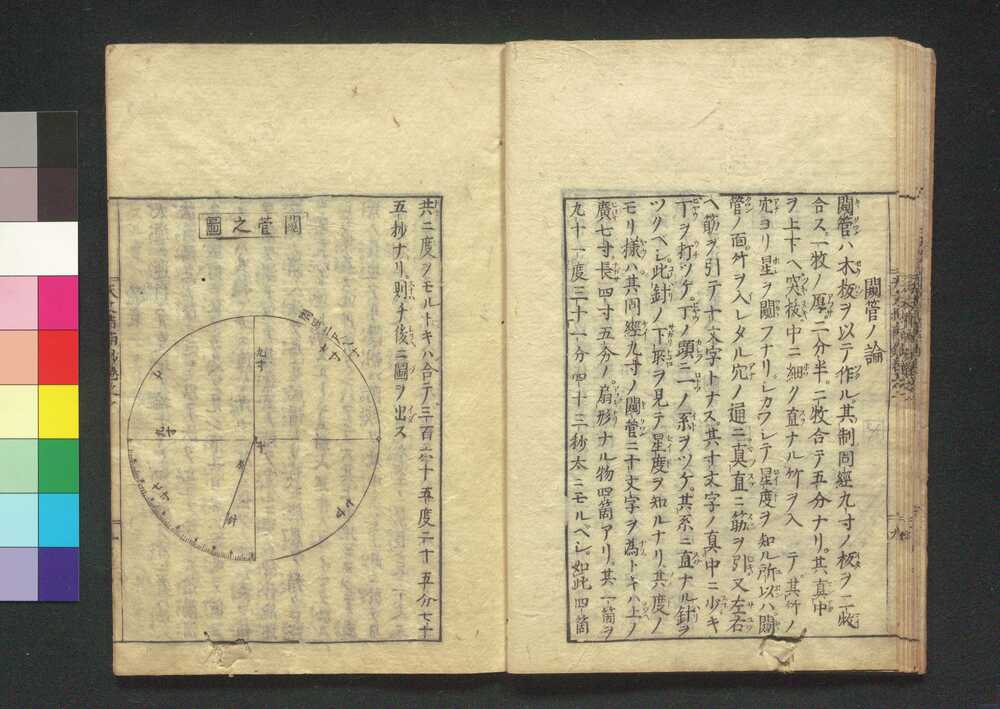 闚管ノ論
闚管ハ木板ヲ以テ作ル其制同經九寸ノ板ヲ二牧
合ス一牧ノ厚二分半二牧合テ五分ナリ其真中
ヲ上下ヘ突抜中ニ細ク直ナル竹ヲ入テ其竹ノ
穴ヨリ星ヲ闚フナリシカフシテ星度ヲ知ル所以ハ闚
管ノ面竹ヲ入レタル穴ノ通ニ真直ニ筋ヲ引又左右
ヘ筋ヲ引テ十文字トナス其十文字ノ真中ニ少キ
丁ヲ打ツケ丁ノ頭ニ一ノ糸ヲツケ其糸ニ直ナル針ヲ
ツクヘシ此針ノ下ヲ見テ星度ヲ知ルナリ其度ノ
モリ様ハ其同經九寸ノ闚管ニ十文字ヲ為トキハ上ノ
廣七寸長四寸五分ノ扇形ナル物四箇アリ其一箇ヲ
九十一度三十一分四十三秒太ニモルベシ如此四箇
共ニ度ヲモルトキハ合テ三百六十五度二十五分七十
五抄ナリ則チ後ニ圖ヲ出ス
闚管之圖
九寸
丁
糸
針
七寸